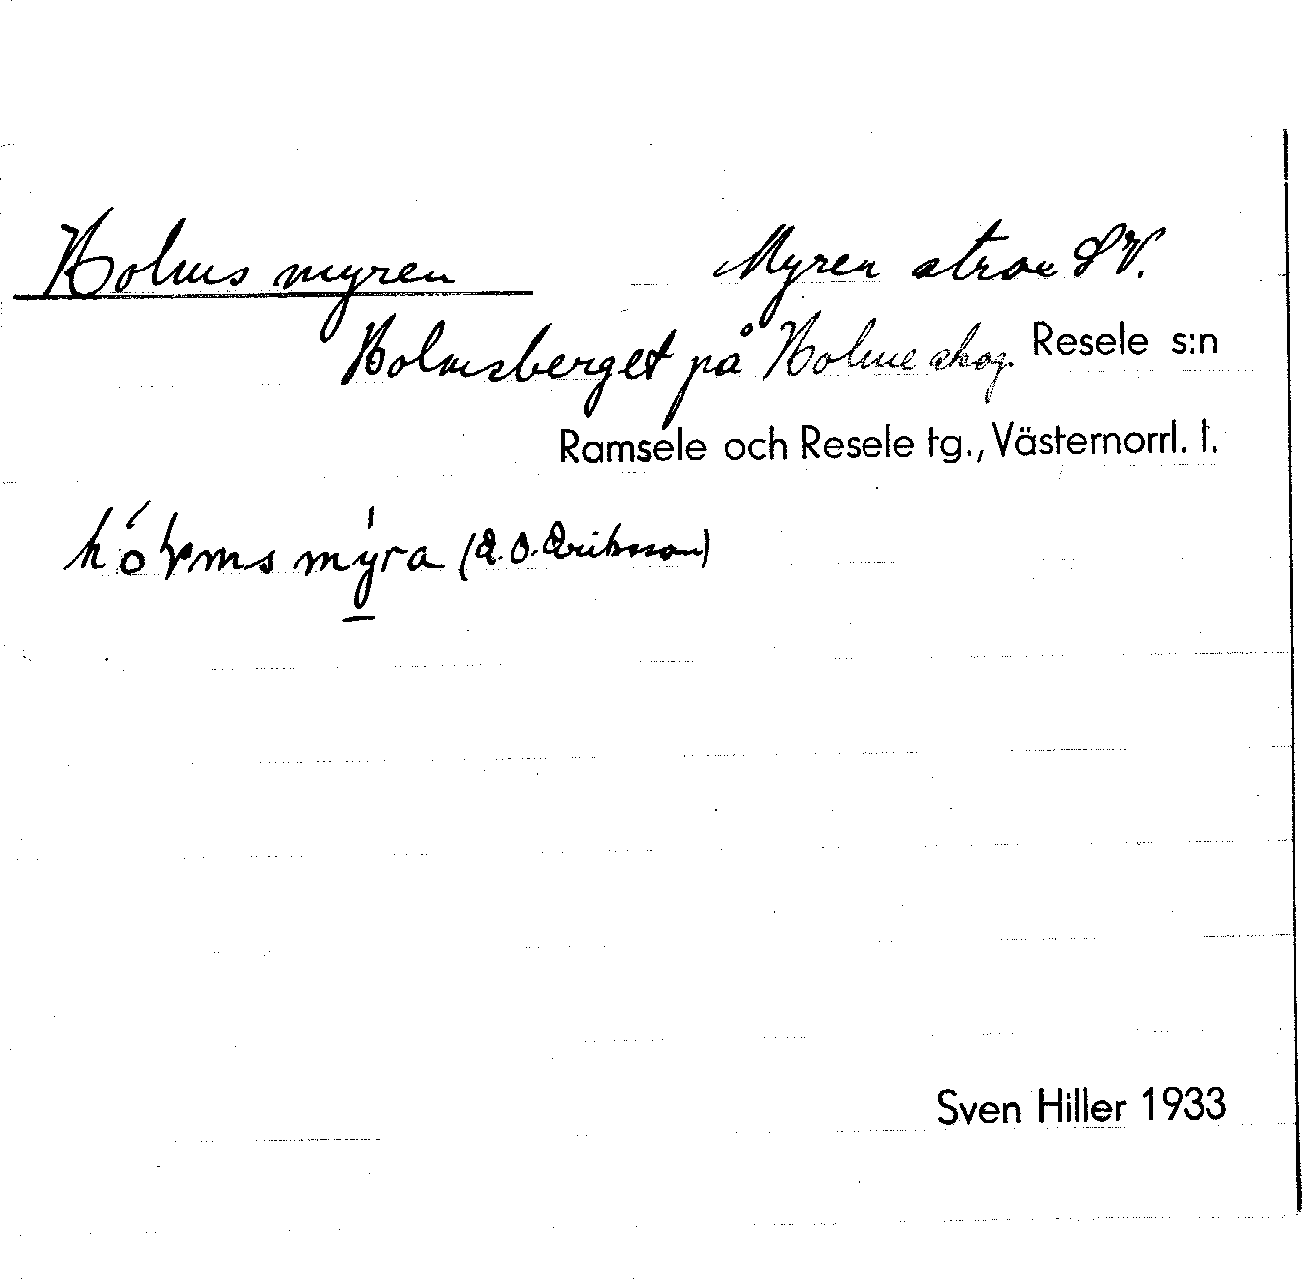 Holms myren Myren strax SV.
Holmsberget på Holme skog. Resele s:n
Ramsele och Resele tg., Västernorrl. l.
mýra (E. O. Eriksson)
Sven Hiller 1933